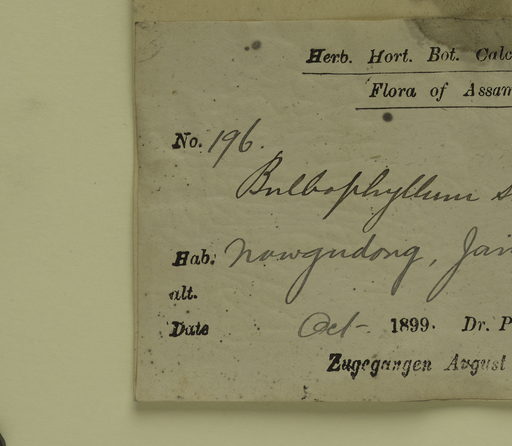 Herb. Hort. Bot. Calc
Flora of Assam
No. 196.
Bulbophyllum s
Hab: Nowgudong, Jain
alt.
Date Oct- 1899. Dr. P
Zugegangen August